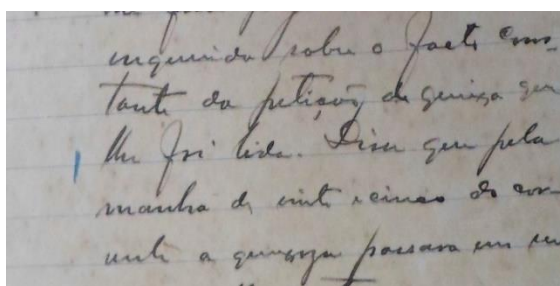 inquerida sobre o facto cons-
tante da petição de queixa que
lhe foi lida. Disse que pela
manhã de vinte e cinco do cor-
rente a queixosa passava em